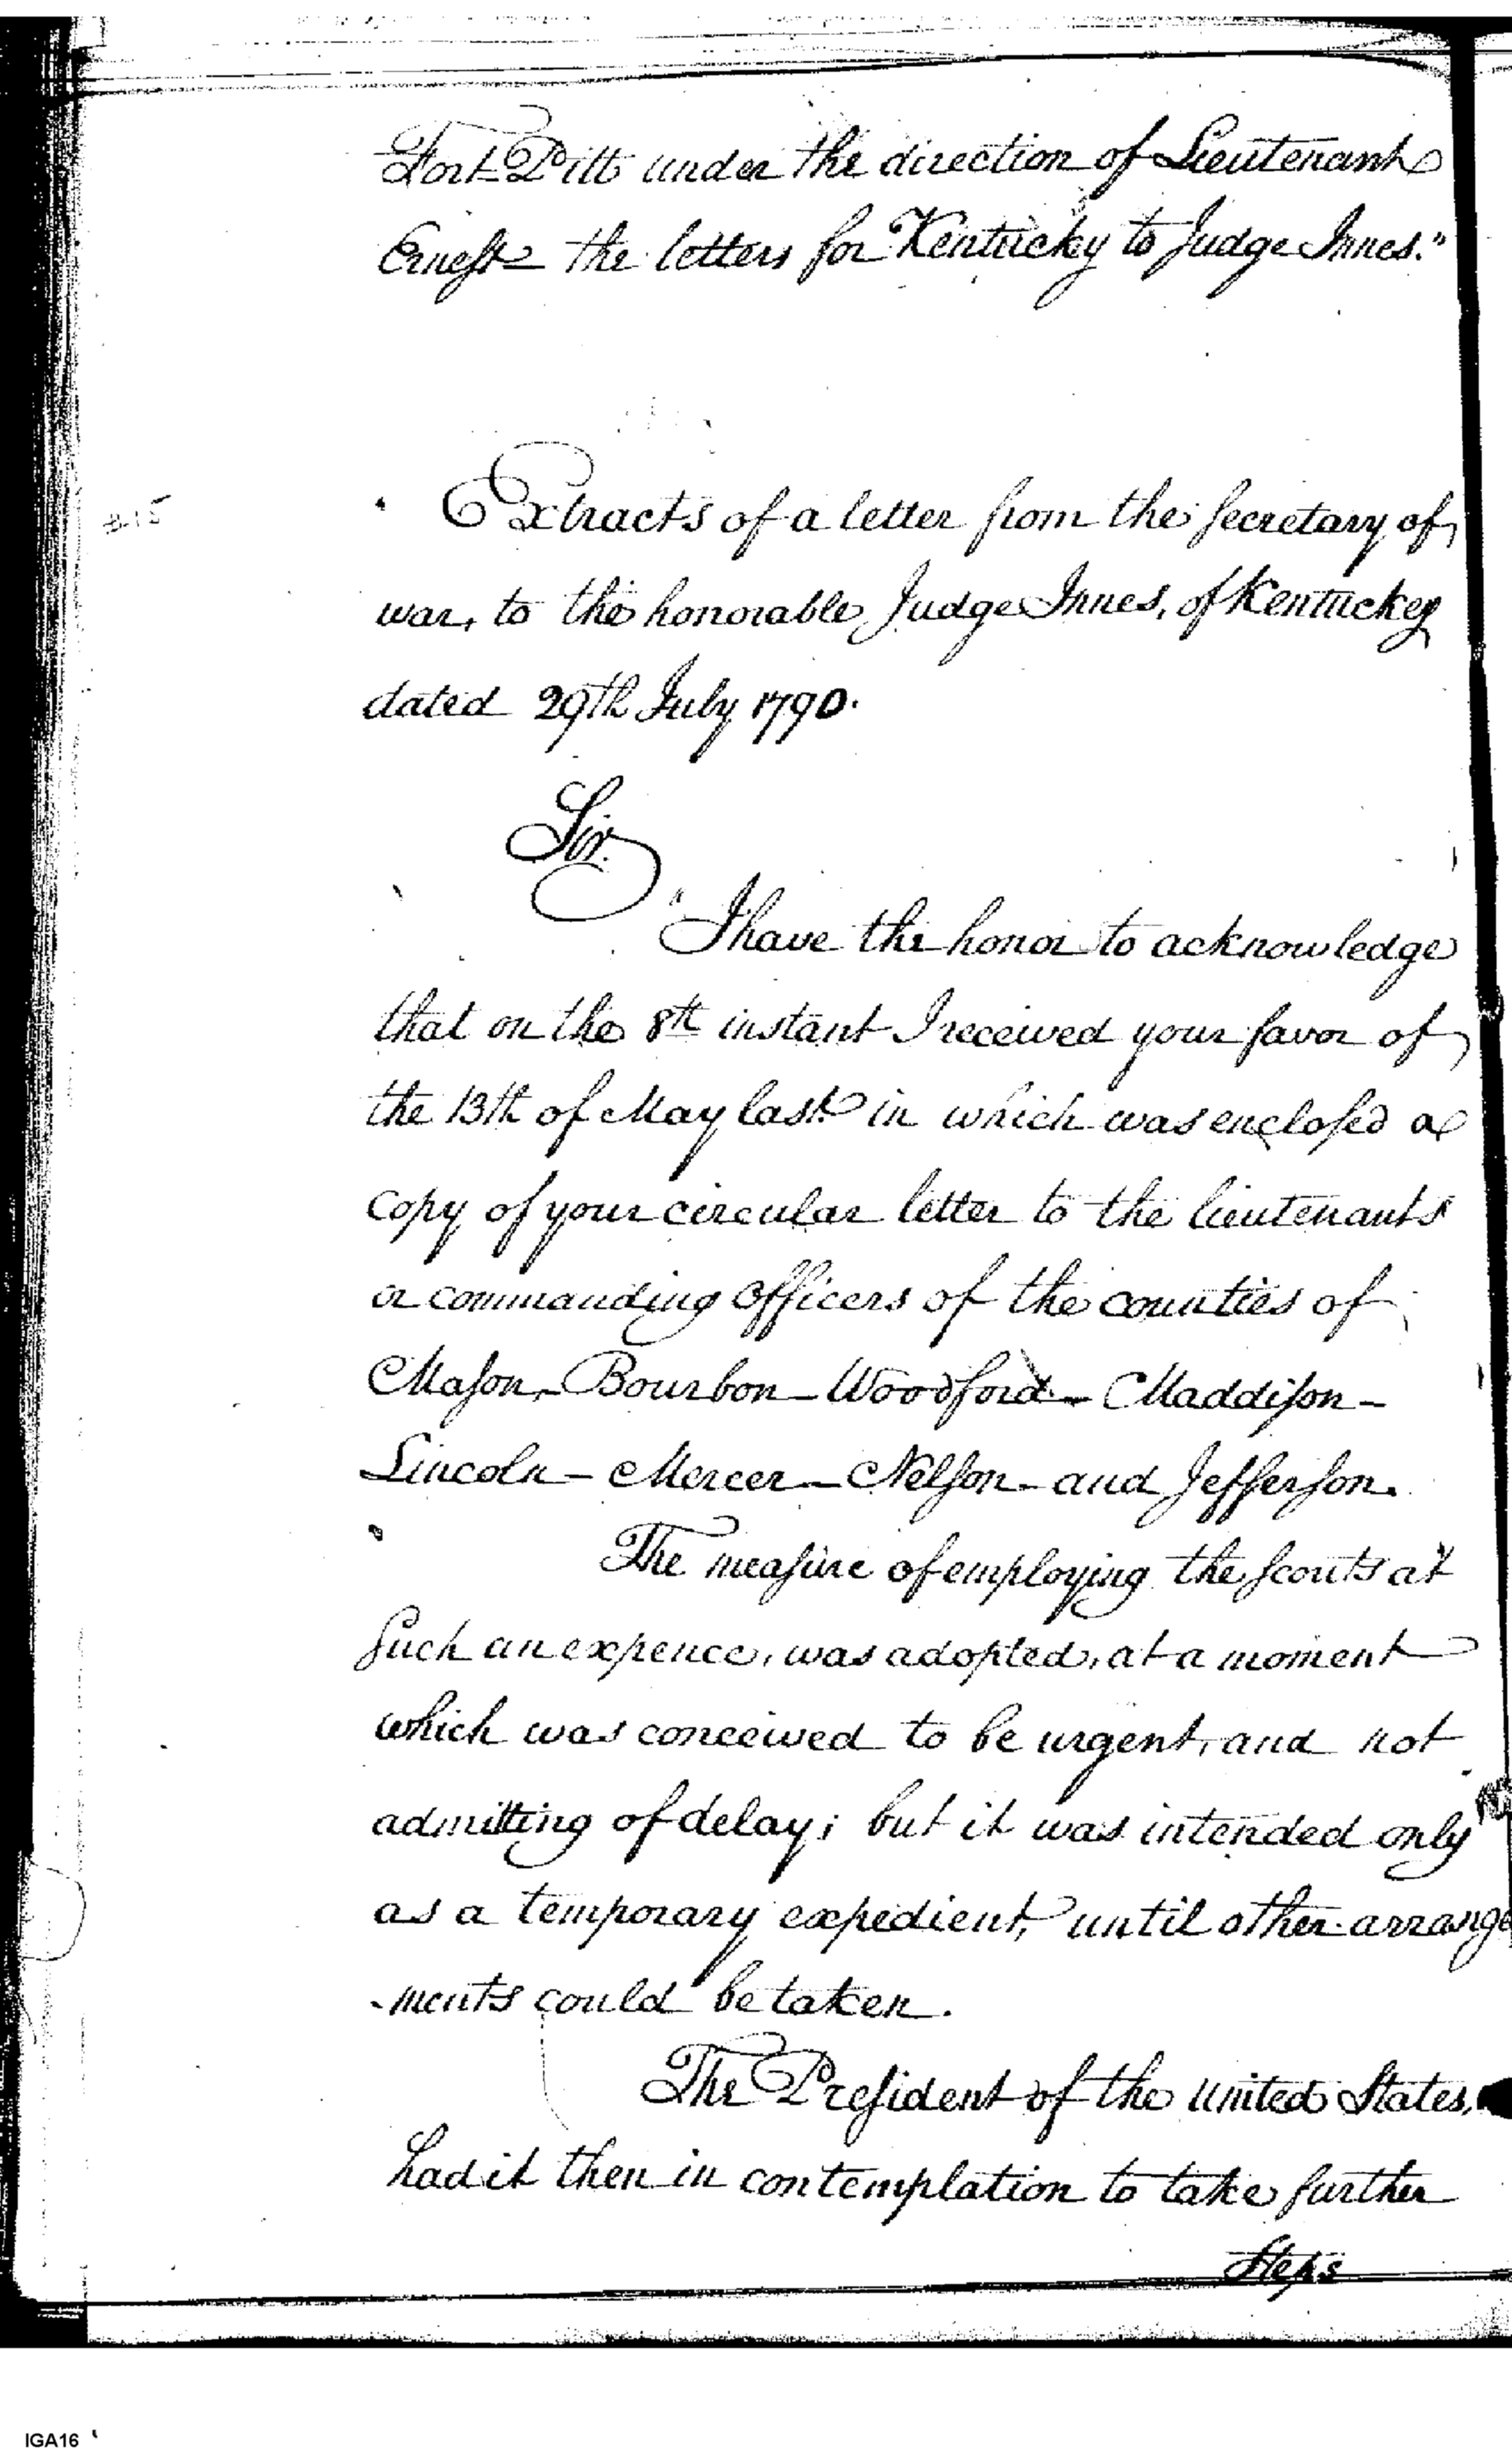 Fort Pitt under the direction of Lieutenant
Ernest the letters for Kentucky to Judge Innes."
Extracts of a letter from the Secretary of
war, to the honorable Judge Innes, of Kentuckey
dated 29th July 1790.
Sir.
"I have the honor to acknowledge
that on the 8th instant I received your favor of
the 13th of May last in which was enclosed a
copy of your circular letter to the lieutenants
or commanding officers of the counties of
Mason, Bourbon - Woodford - Maddison -
Lincoln - Mercer - Nelson - and Jefferson.
The measure of employing the scouts at
such an expence, was adopted, at a moment
which was conceived to be urgent, and not
admitting of delay; but it was intended only
as a temporary expedient, until other arrange
-ments could be taken.
The President of the United States,
had it then in contemplation to take further
Steps
IGA16